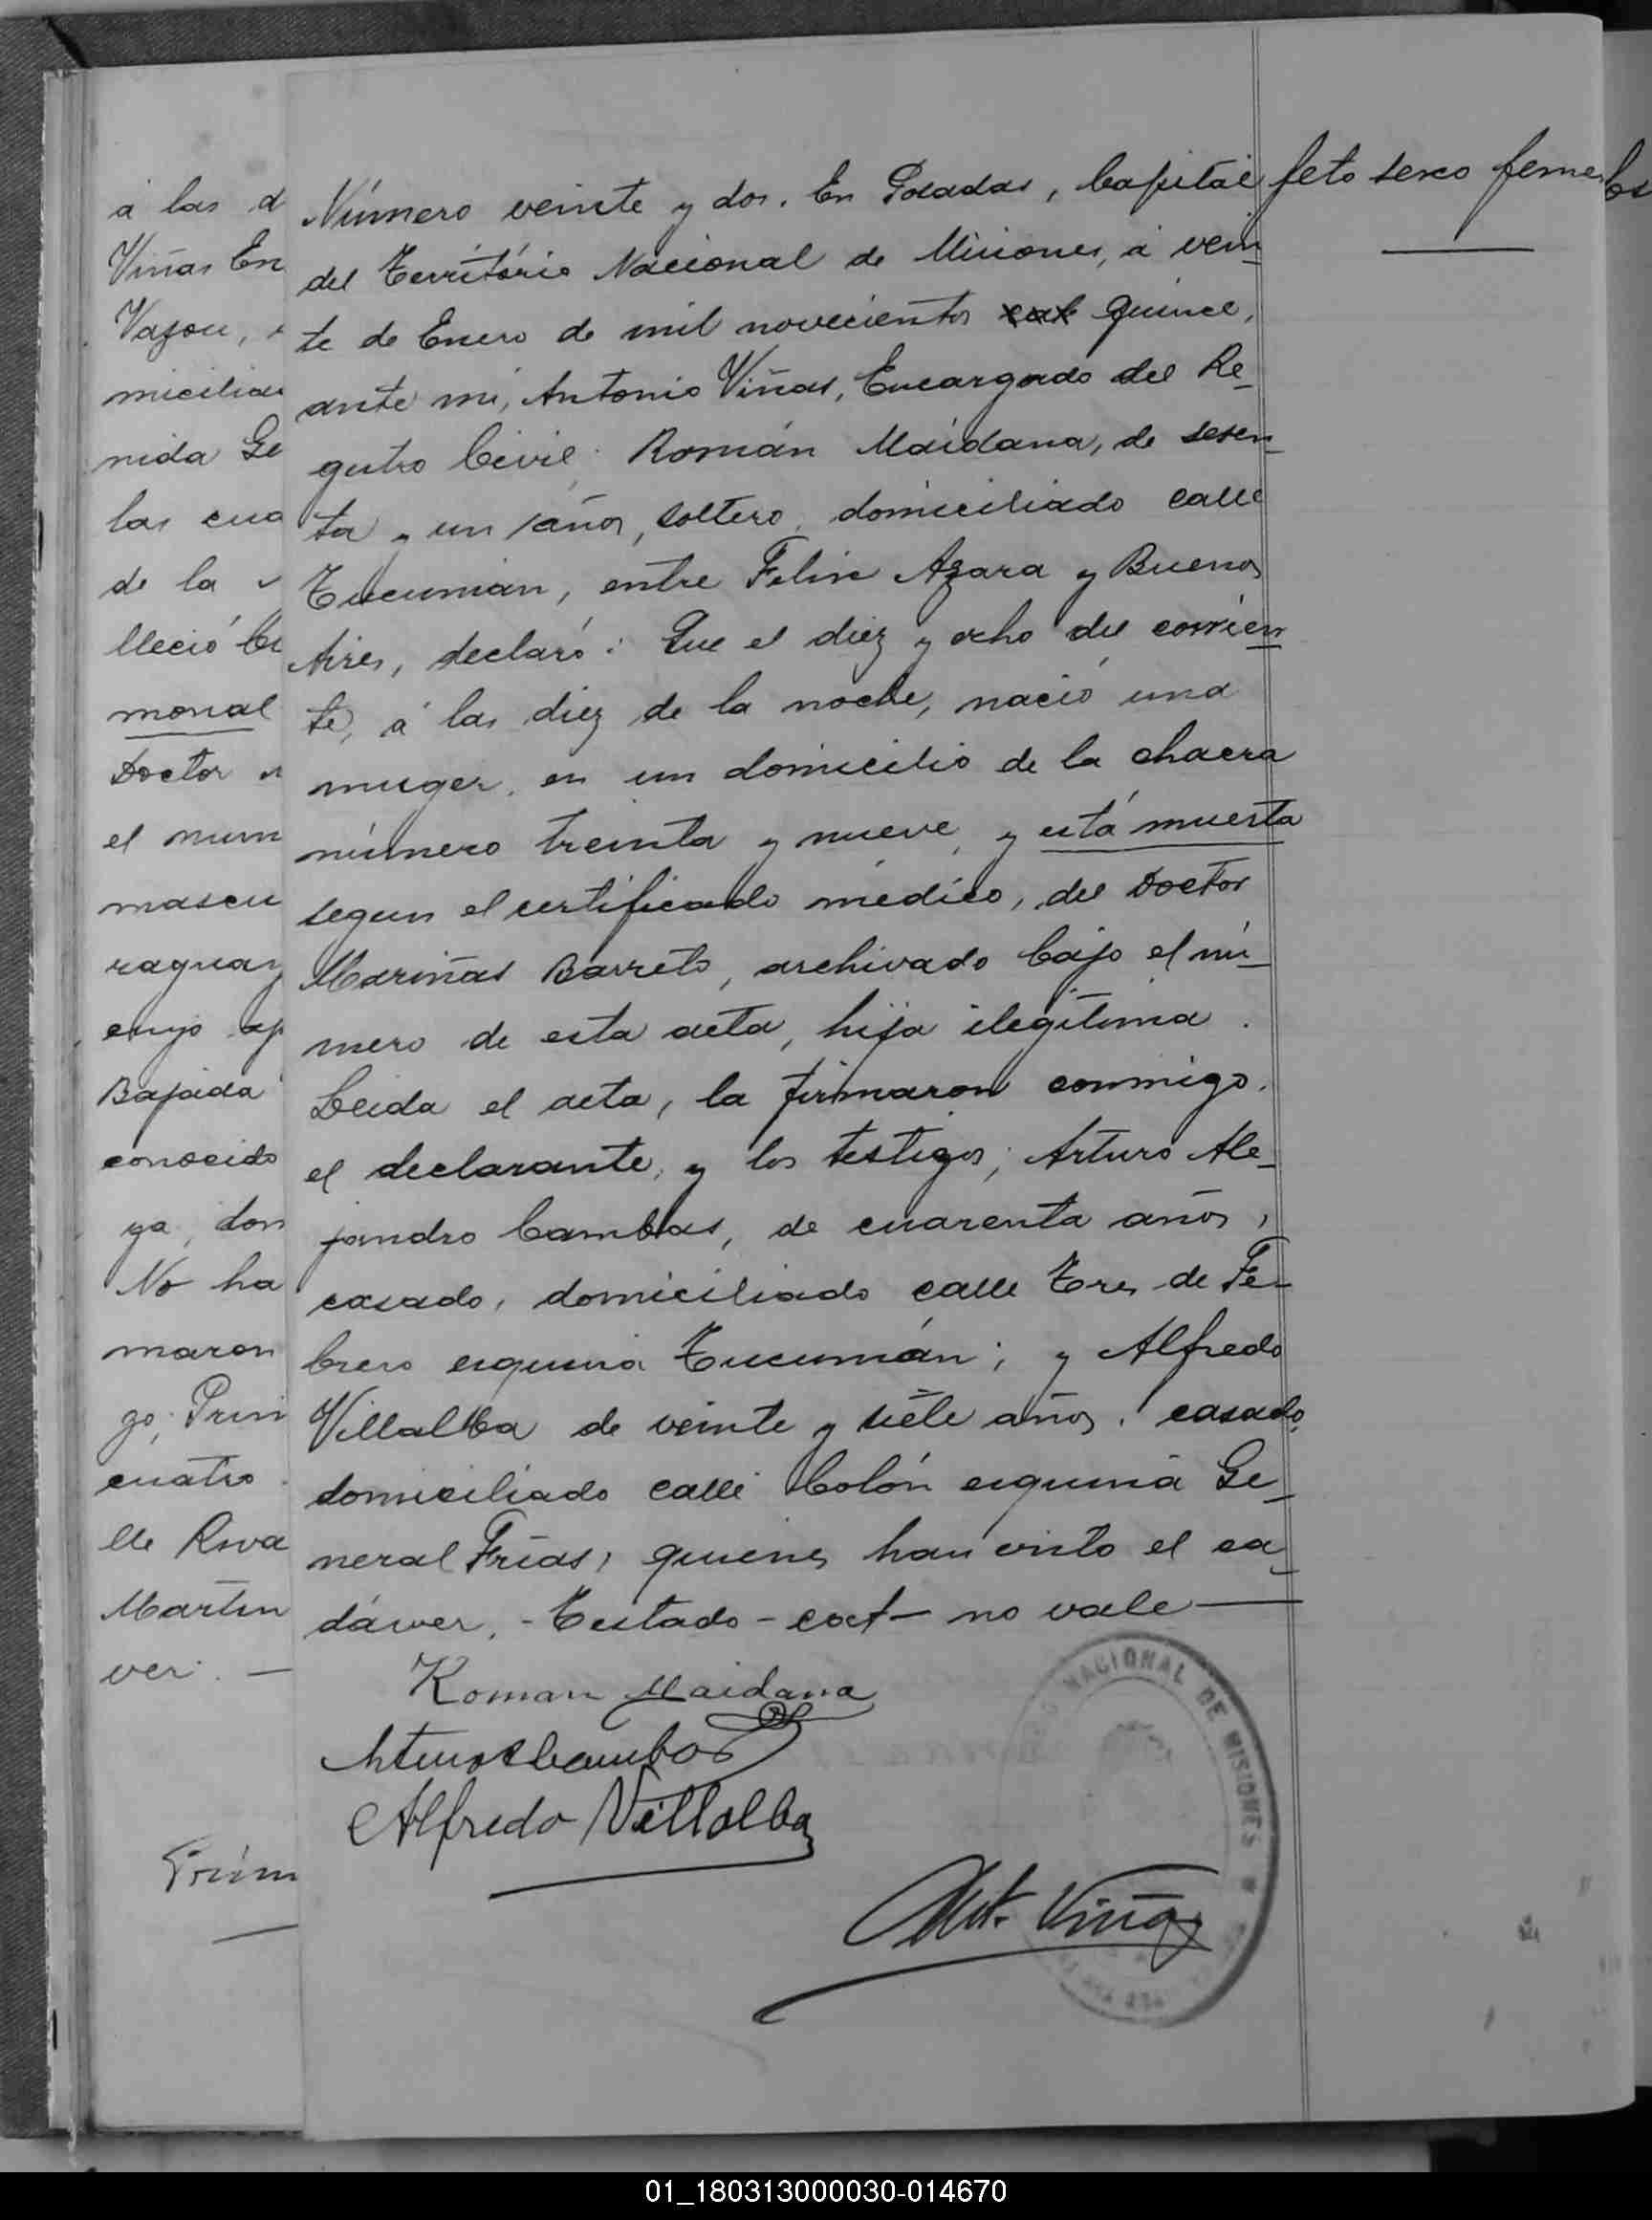 Número veinte y dos. En Posadas, Capital
del Território Nacional de Misiones, á vein-
te de Enero de mil novecientos cat quince,
ante mi, Antonio Viñas, Encargado del Re-
gistro Civil, Román Maidana, de sesen-
ta y un años, soltero, domiciliado calle
Tucumán, entre Felix Azara y Buenos
Aires, declaró: Que el diez y ocho del corrien-
te, á las diez de la noche, nació una
muger, en un domicilio de la chacra
número treinta y nueve, y está muerta
segun el certificado médico, del Doctor
Mariñas Barreto, archivado bajo el nú-
mero de esta acta, hija ilegítima.
Leida el acta, la firmaron conmigo,
el declarante, y los testigos; Arturo Ale-
jandro Cambas, de cuarenta años,
casado, domiciliado calle Tres de Fe-
brero esquina Tucumán; y Alfredo
Villalba de veinte y siete años, casado,
domiciliado calle Colón esquina Ge-
neral Frías, quienes han visto el ca-
dáver. - Testado - cat - no vale
feto sexo feme
Roman Maidana
Arturo A Cambas
Alfredo Villalba
Ant. Viñas
NACIONAL DE MISIONES
á las d
Viñas En
micilia
nida Ge
las cua
de la
lleció
monal
Doctor
el num
mascu
raguay
cuyo ap
Bajada
conocido
ya, don
No ha
maron
go, Prim
cuatro
lle Riva
Martin
ver. —
Prim
01_180313000030-014670